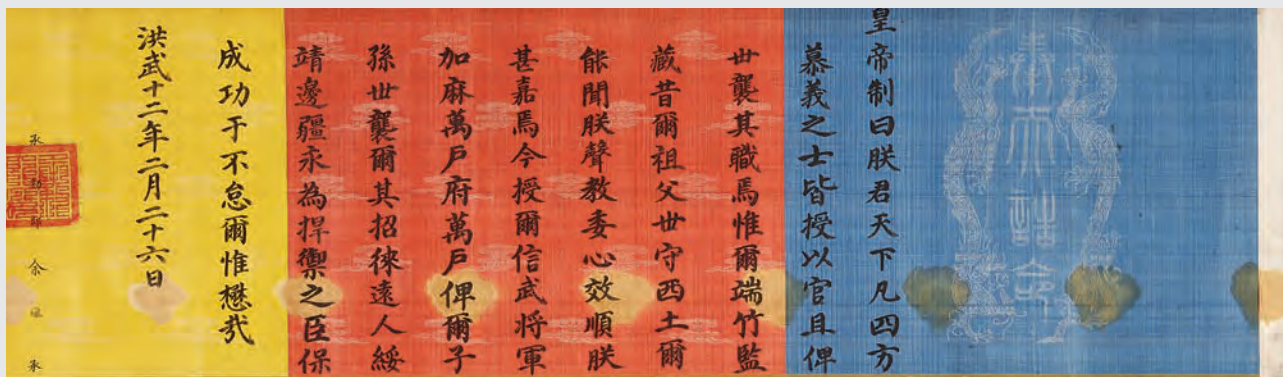 奉天誥命
皇帝制曰朕君天下凡四方
慕義之士皆授以官且俾
世襲其職焉惟爾端竹監
藏昔爾祖父世守西土爾
能聞朕聲教委心效順朕
甚嘉焉今授爾信武將軍
加麻萬戶府萬戶俾爾子
孫世襲爾其招徠遠人綏
靖邊疆永為捍禦之臣保
成功于不怠爾惟懋哉
洪武十二年二月二十六日
承 郎 余 承